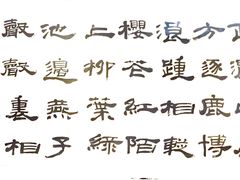 方逐鹿博
浪踵相蹤
櫻花紅陌
上柳葉綠
池邊燕子
聲聲裏相